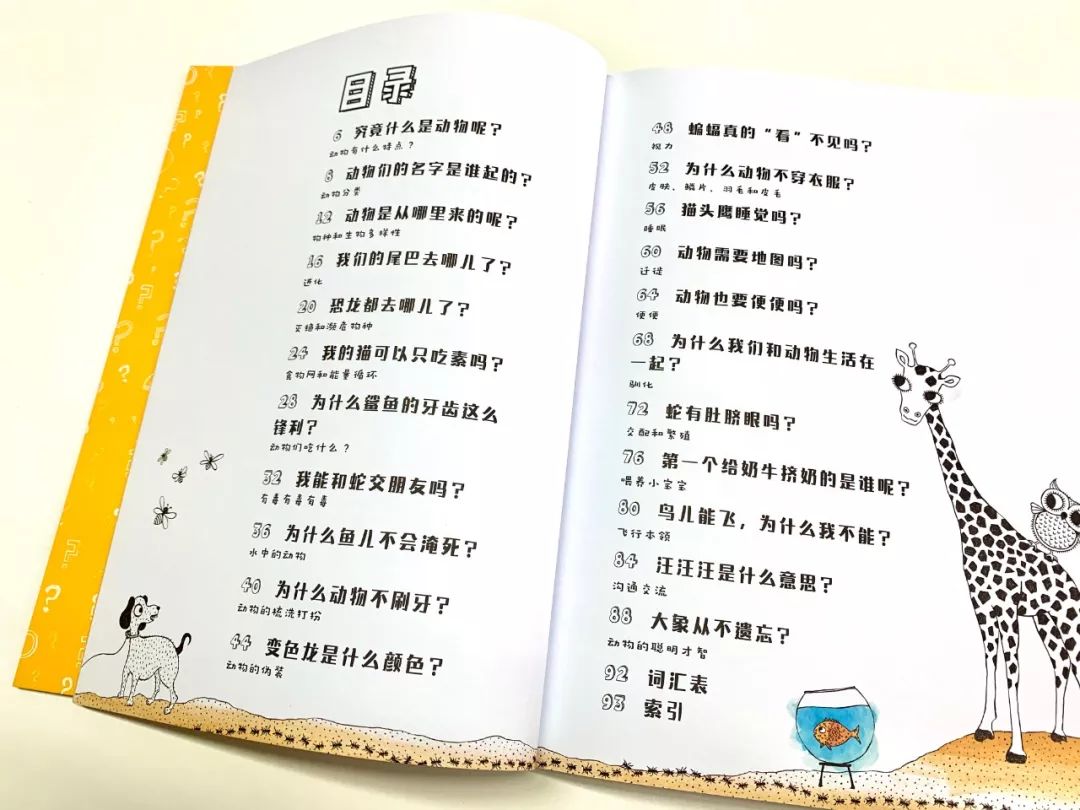 目录
6 究竟什么是动物呢？
动物有什么特点？
8 动物们的名字是谁起的？
动物分类
12 动物是从哪里来的呢？
物种和生物多样性
16 我们的尾巴去哪儿了？
进化
20 恐龙都去哪儿了？
灭绝和濒危物种
24 我的猫可以只吃素吗？
食物网和能量循环
28 为什么鲨鱼的牙齿这么
锋利？
动物们吃什么？
32 我能和蛇交朋友吗？
有毒有毒有毒
36 为什么鱼儿不会淹死？
水中的动物
40 为什么动物不刷牙？
动物的梳洗打扮
44 变色龙是什么颜色？
动物的伪装
48 蝙蝠真的“看”不见吗？
视力
52 为什么动物不穿衣服？
皮肤、鳞片、羽毛和皮毛
56 猫头鹰睡觉吗？
睡眠
60 动物需要地图吗？
迁徙
64 动物也要便便吗？
便便
68 为什么我们和动物生活在
一起？
驯化
72 蛇有肚脐眼吗？
交配和繁殖
76 第一个给奶牛挤奶的是谁呢？
喂养小宝宝
80 鸟儿能飞，为什么我不能？
飞行本领
84 汪汪汪是什么意思？
沟通交流
88 大象从不遗忘？
动物的聪明才智
92 词汇表
93 索引